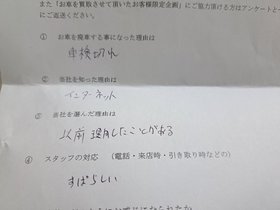 また「お車を買取させて頂いたお客様限定企画」にご協力頂ける方はアンケートと
にご返送ください。
① お車を廃車する事になった理由は
車検切れ
② 当社を知った理由は
インターネット
③ 当社を選んだ理由は
以前 利用したことがある
④ スタッフの対応 (電話・来店時・引き取り時などの)
すばらしい